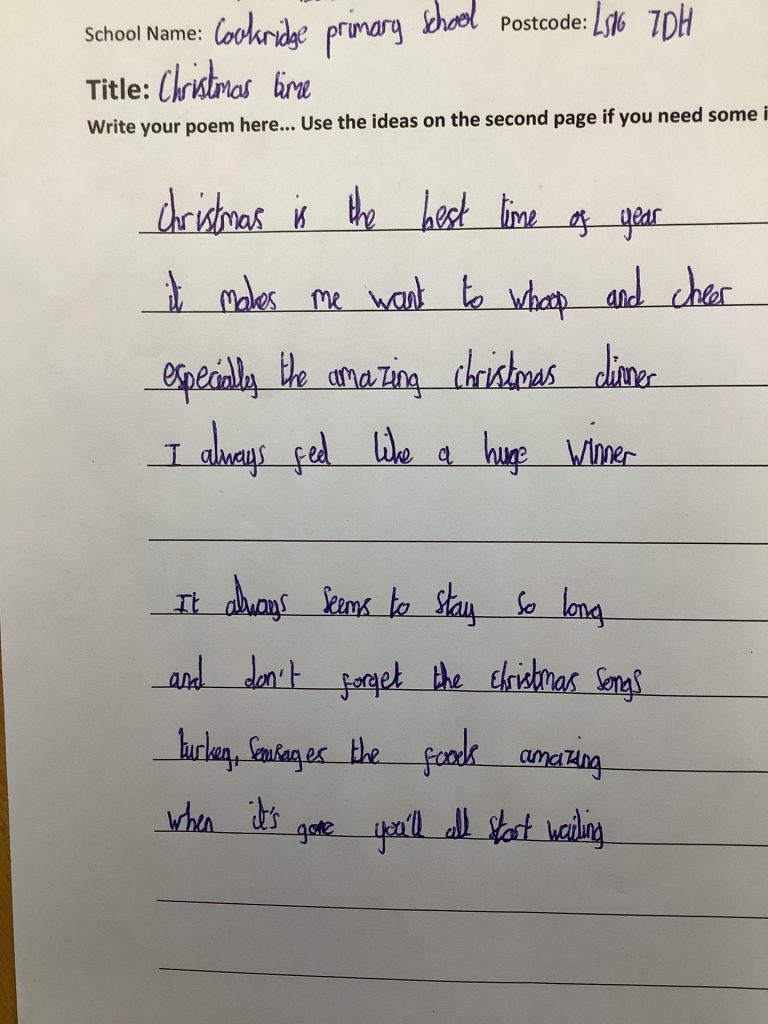 School Name: Cookridge primary school Postcode: LS16 7DH
Title: Christmas time
Write your poem here... Use the ideas on the second page if you need some i
Christmas is the best time of year
it makes me want to whoop and cheer
especially the amazing christmas dinner
I always feel like a huge winner
It always seems to stay so long
and don't forget the christmas songs
turkey, sausages the foods amazing
when it's gone you'll all start wailing